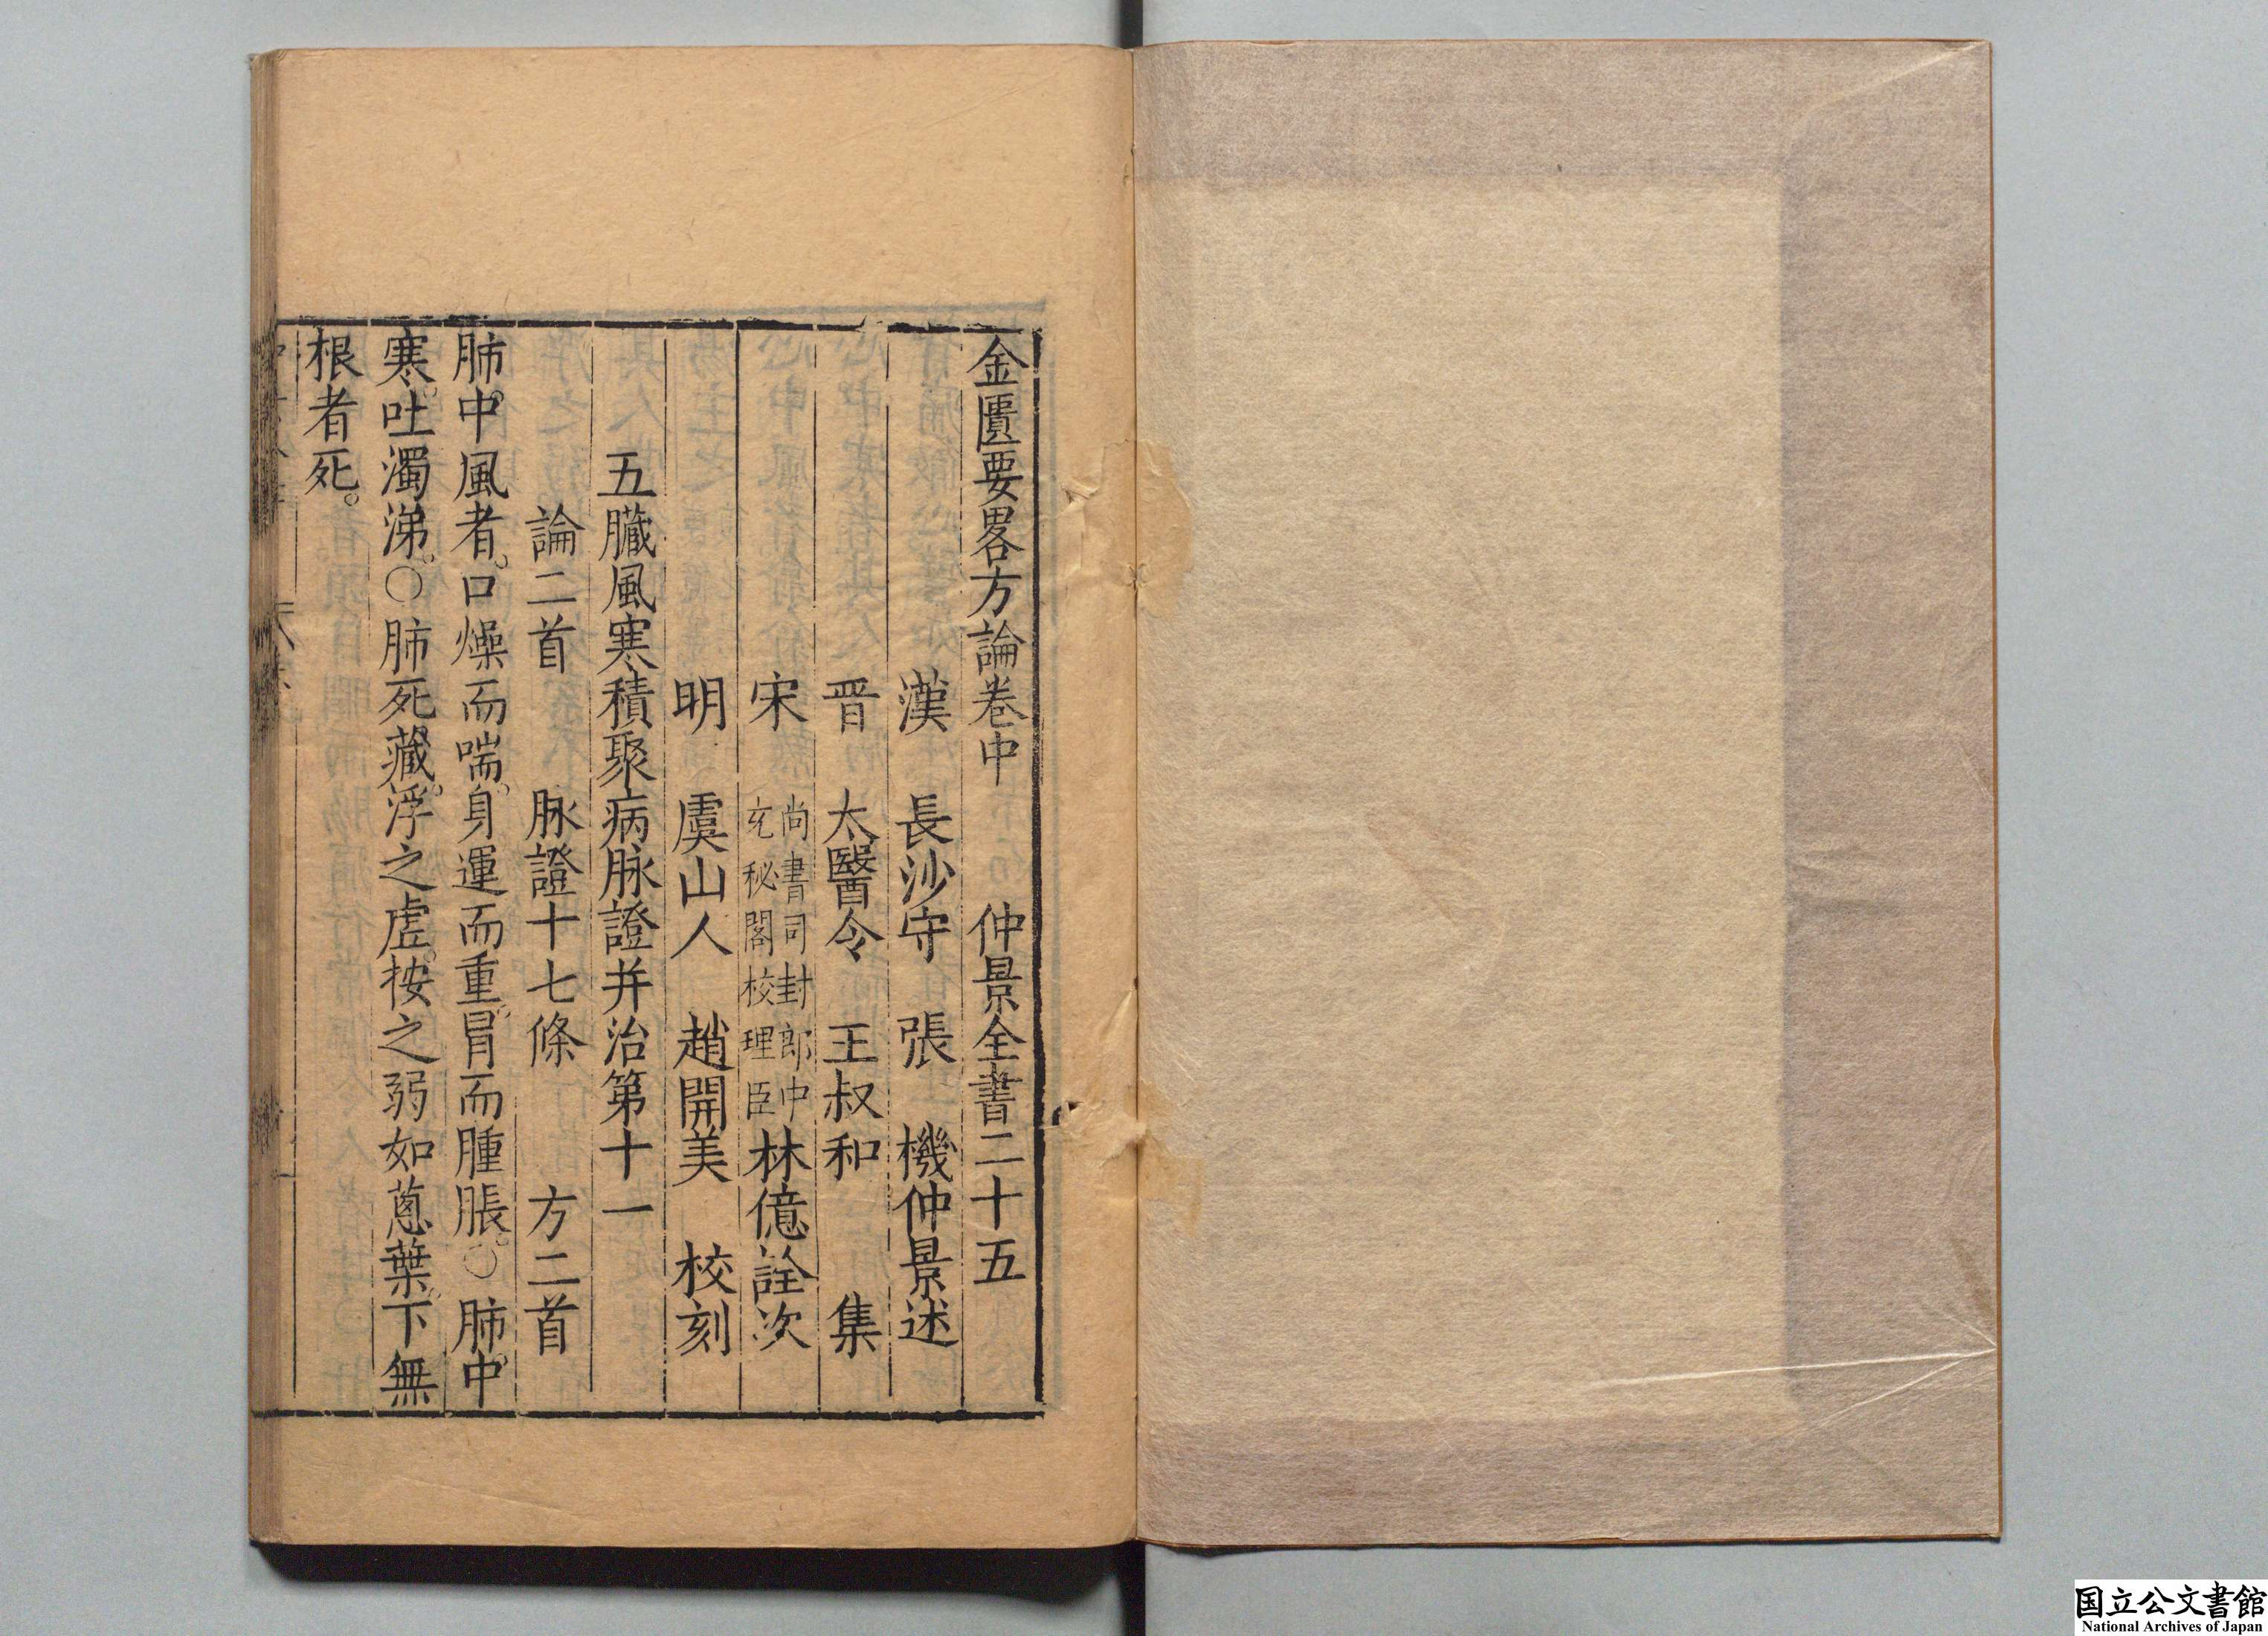 金匱要畧方論卷中　仲景全書二十五
漢　長沙守　張　機仲景述
晋　太醫令　王叔和　集
宋　尚書司封郎中充秘閣校理臣林億詮次
明　虞山人　趙開美　校刻
五臟風寒積聚病脉證并治第十一
論二首　脉證十七條　方二首
肺中風者。口燥而喘。身運而重。冐而腫脹。○肺中
寒。吐濁涕。○肺死藏。浮之虛。按之弱如蔥葉。下無
根者死。
国立公文書館
National Archives of Japan